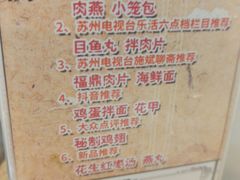 肉燕 小笼包
2、苏州电视台乐活六点档栏目推荐
目鱼丸 拌肉片
3、苏州电视台施斌聊斋推荐
福鼎肉片 海鲜面
4、抖音推荐
鸡蛋拌面 花甲
5、大众点评推荐
秘制鸡翅
6、新品推荐
花生红枣汤 燕丸